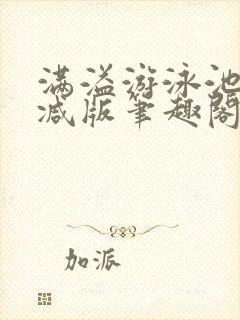 满溢游泳池
减版笔趣阁
加派